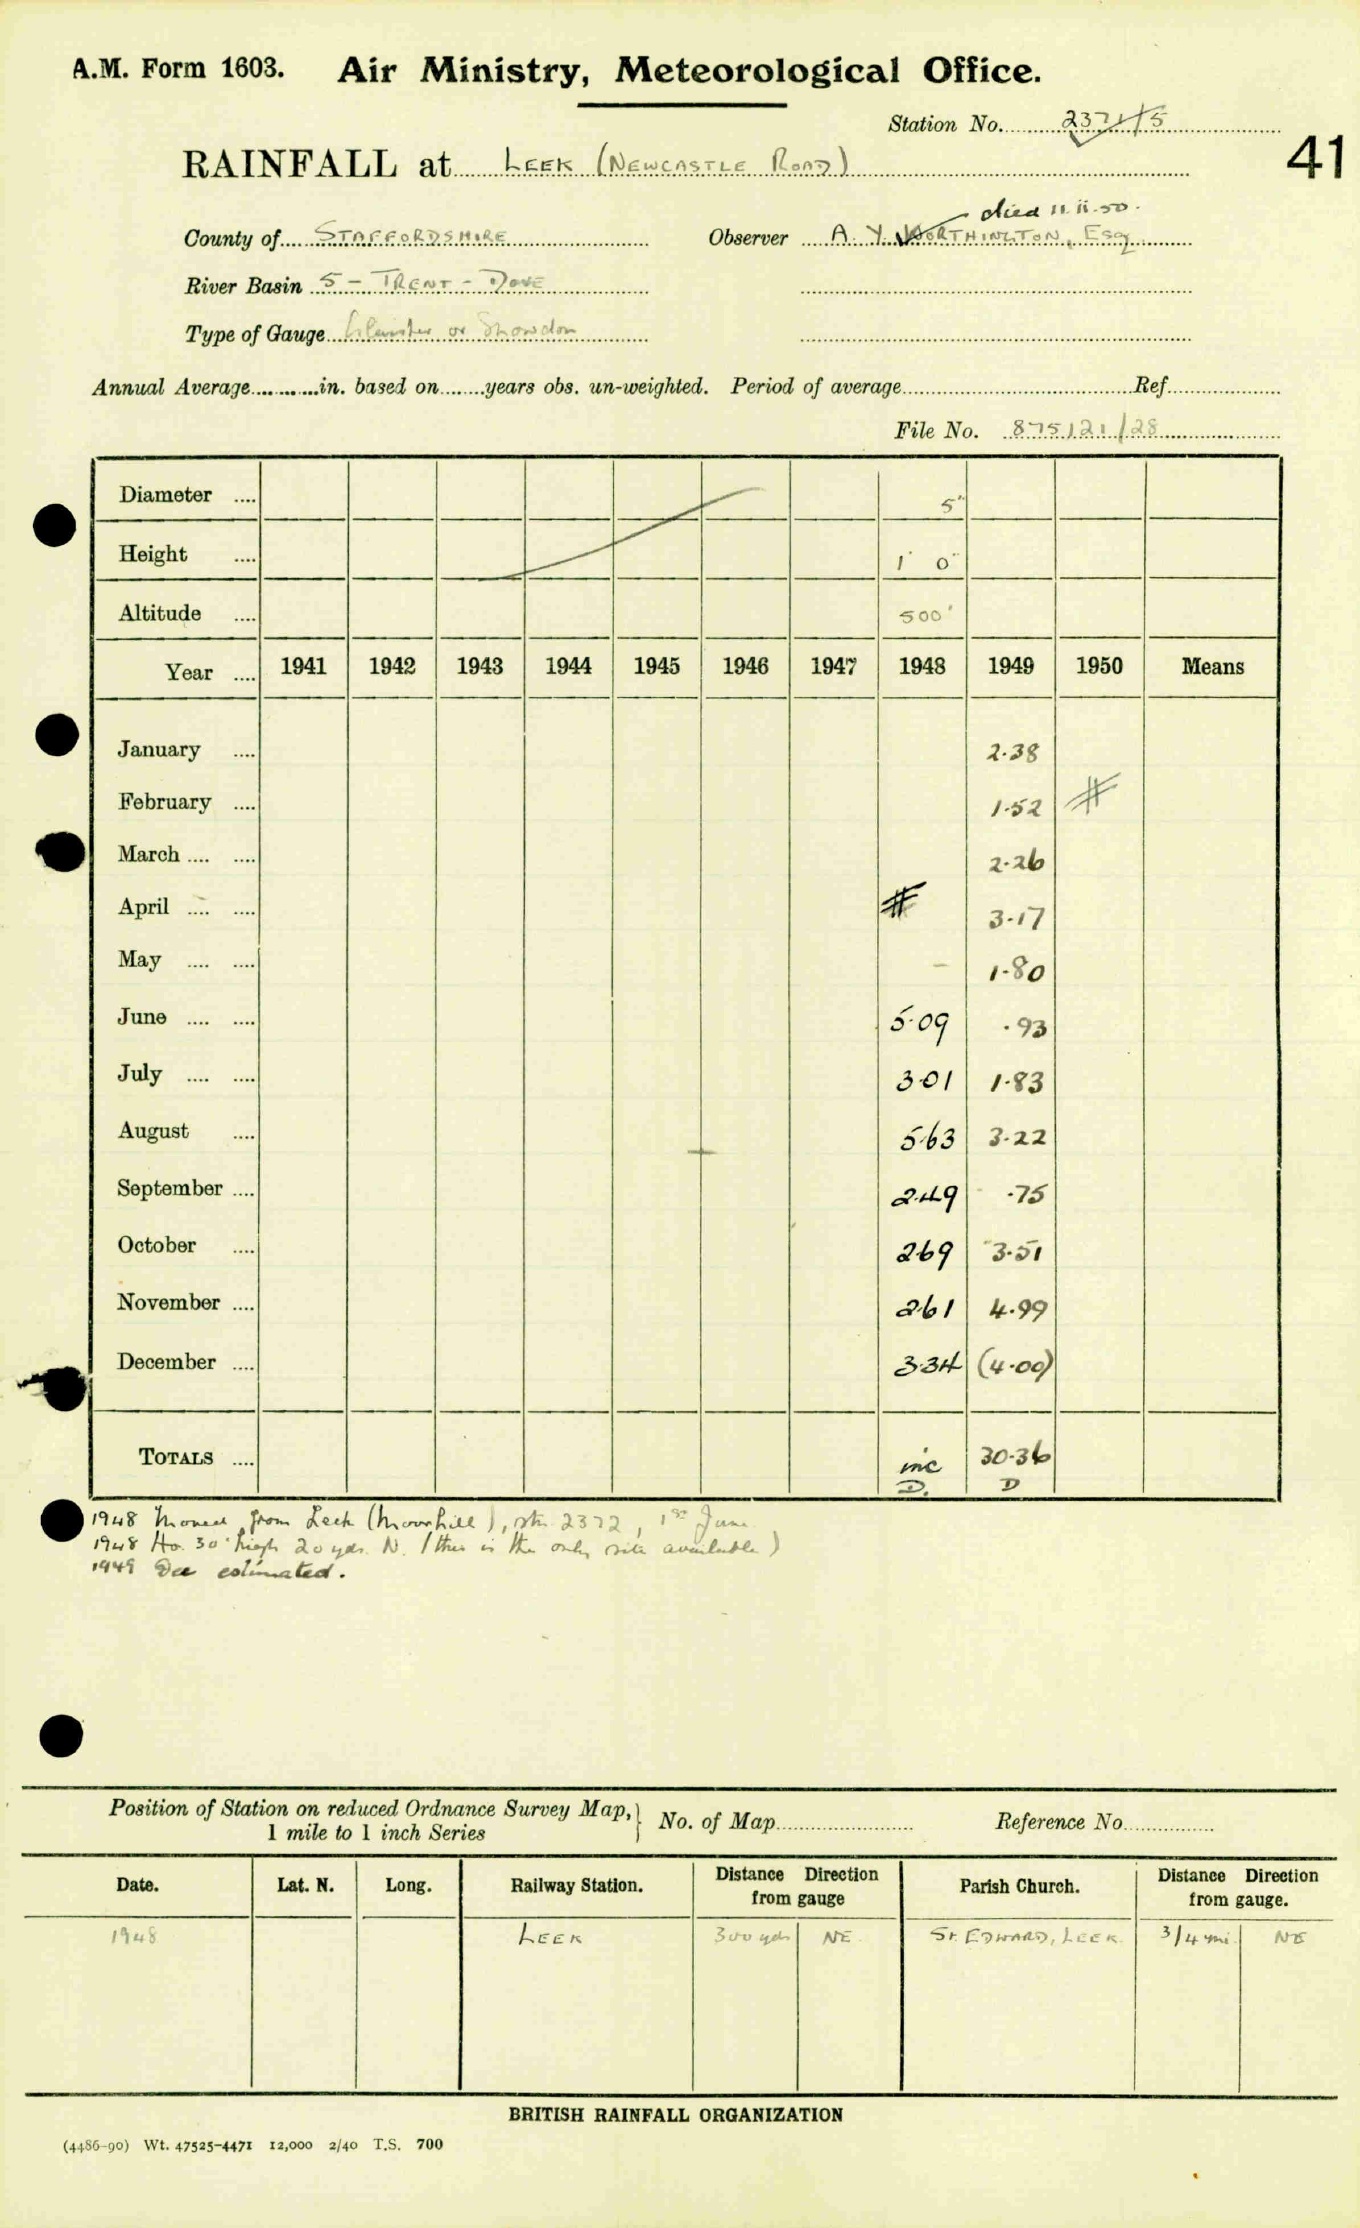 A.M. Form 1603. Air Ministry, Meteorological Office.
Station No. 2371/5
41
RAINFALL at LEEK (NEWCASTLE ROAD)
died 11.ii.50.
County of STAFFORDSHIRE Observer A. Y. WORTHINGTON, Esq.
River Basin 5 - TRENT - DOVE
Type of Gauge or Snowdon
Annual Average in. based on years obs. un-weighted. Period of average Ref
File No. 875121/28
Diameter 5"
Height 1' 0"
Altitude 500'
Year 1941 1942 1943 1944 1945 1946 1947 1948 1949 1950 Means
January 2.38
February 1.52 #
March 2.26
April # 3.17
May - 1.80
June 5.09 .93
July 3.01 1.83
August 5.63 3.22
September 2.49 .75
October 2.69 3.51
November 2.61 4.99
December 3.34 (4.00)
TOTALS inc 30.36
D. D
1948 Moved from Leek (Moorhill), stn 2372, 1st June
1948 Ho. 30' high 20 yds. N. (this is the only site available)
1949 Dec estimated.
Position of Station on reduced Ordnance Survey Map, 1 mile to 1 inch Series No. of Map Reference No.
Date. Lat. N. Long. Railway Station. Distance Direction from gauge Parish Church. Distance Direction from gauge.
1948 LEEK 300 yds NE. St. EDWARD, LEEK. 3/4 mi. NE
BRITISH RAINFALL ORGANIZATION
(4486-90) Wt. 47525-4471 12,000 2/40 T.S. 700